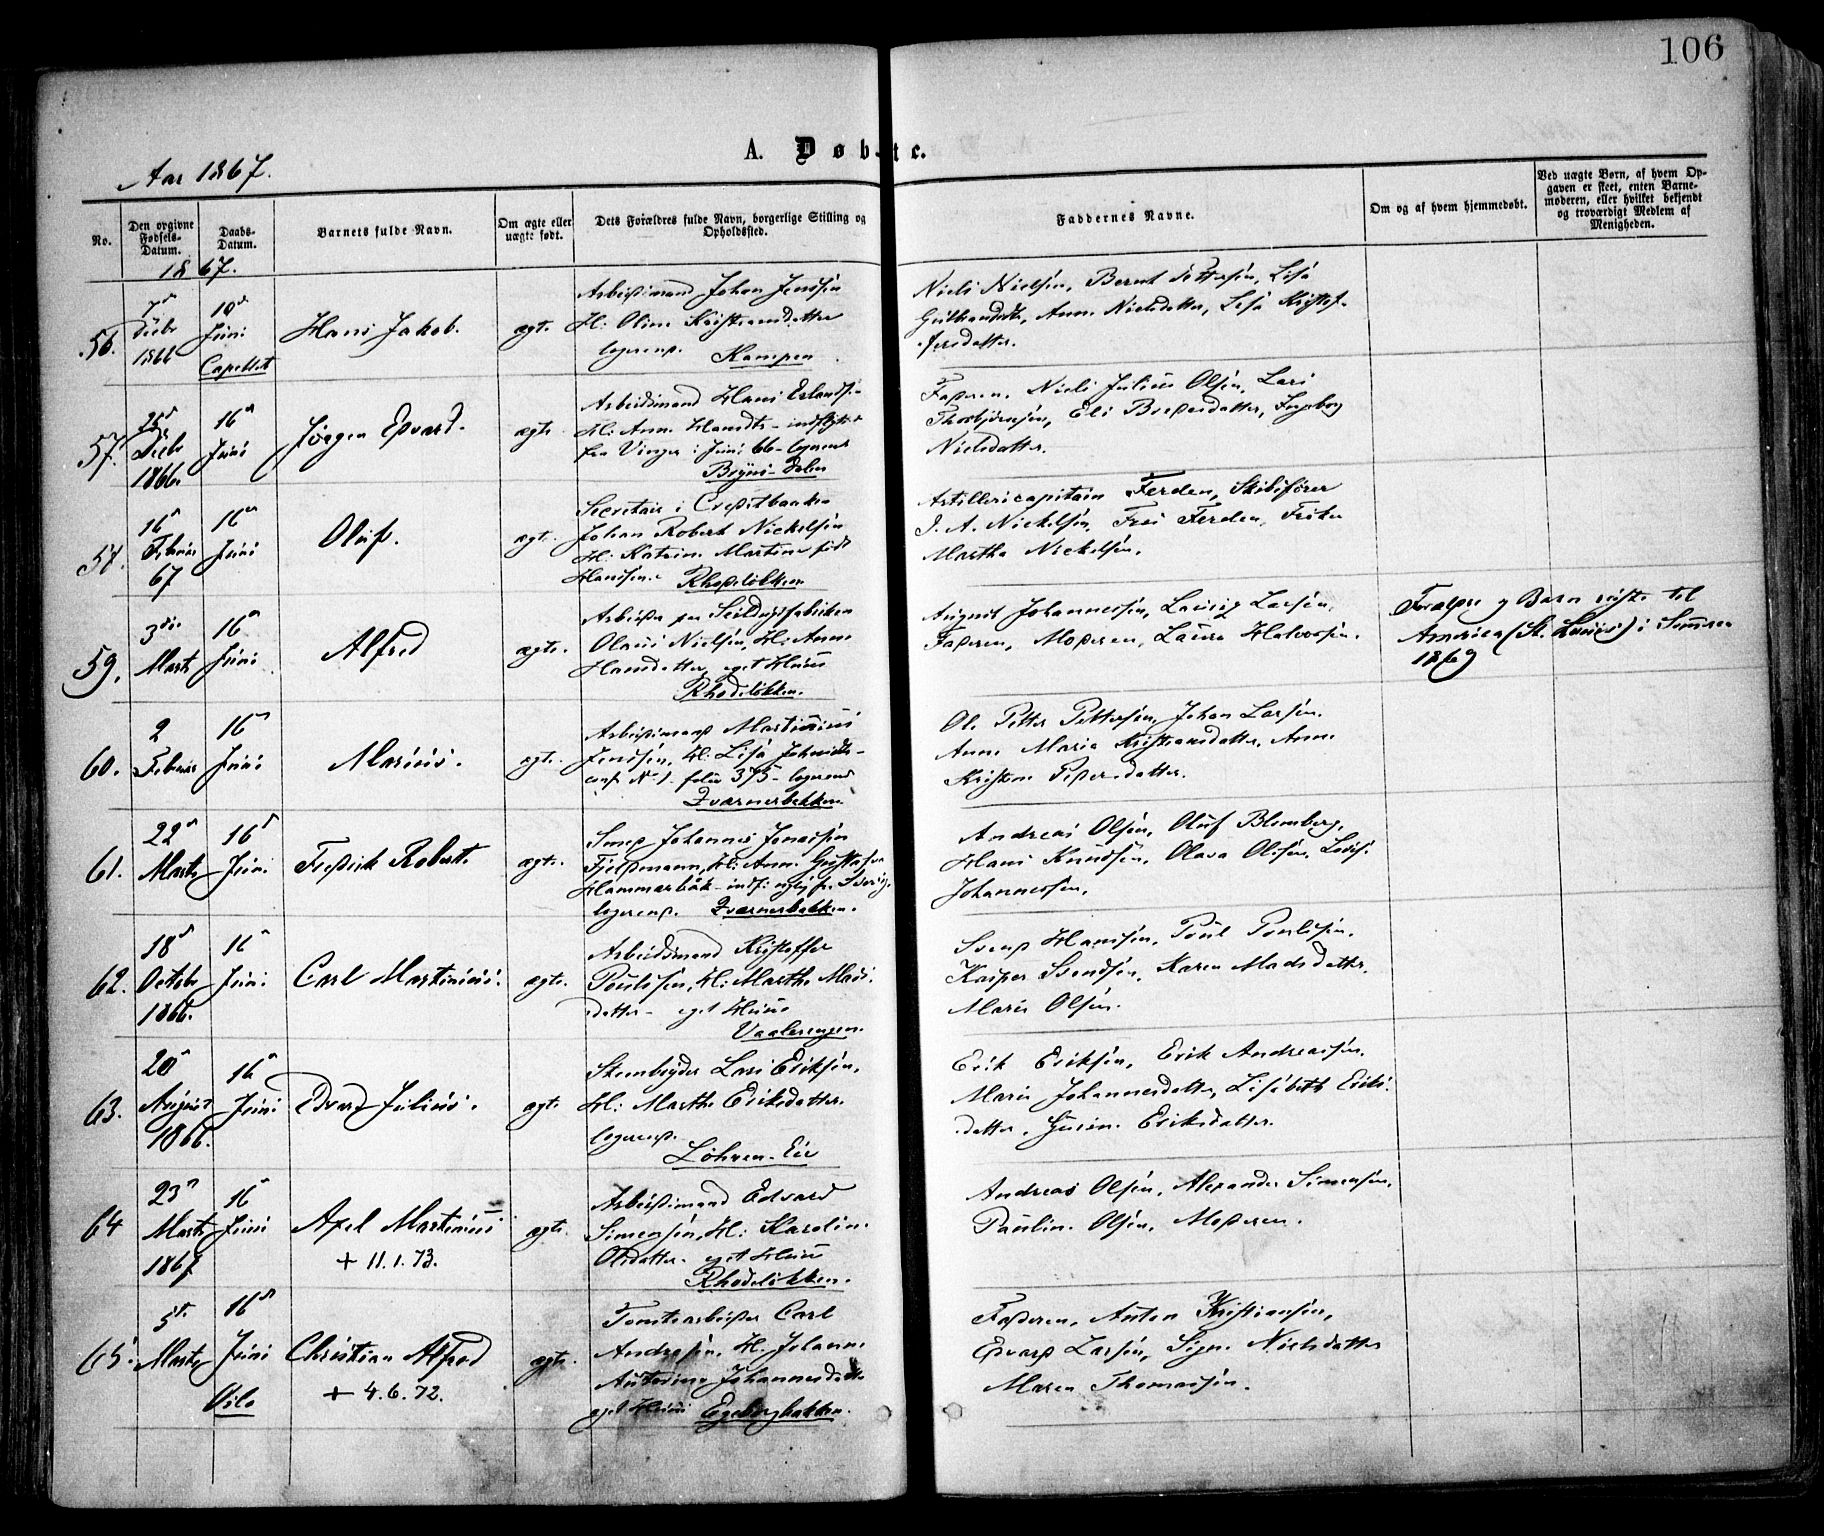 106
A. Døbte.
Aar 1867.
No.
Den opgivne
Fødsels-
Datum.
Daabs-
Datum.
Barnets fulde Navn.
Om ægte eller
uægte født.
Dets Forældres fulde Navn, borgerlige Stilling og
Opholdssted.
Faddernes Navne.
Om og af hvem hjemmedøbt.
Ved uægte Børn, af hvem Op-
gaven er skeet, enten Barne-
moderen, eller hvilket bekjendt
og troværdigt Medlem af
Menigheden.
1867.
56.
7de
Decbr
1866
10de
Juni
Capellet
Hans Jakob.
ægte.
Arbeidsmand Johan Jensen
H: Oline Kristiansdatter
logerend. Kampen
Niels Nielsen, Bernt Pettersen, Lisa
Gulbrandsdtr, Anne Nielsdatter, Lisa Kristof-
fersdatter.
57.
25de
Decbr
1866.
16de
Juni
Jørgen Edvard.
ægte.
Arbeidsmand Hans Erlands.-
H: Anne Hansdtr - indflyttet
fra Vinger i Juni 66 - logerend
Bryns-Dalen
Faderen, Niels Julius Olsen, Lars
Thorbjørnsen, Eli Pedersdatter, Ingeborg
Nielsdatter.
58.
16de
Februar
67
16de
Juni
Oluf.
ægte.
Secretair i Creditbanken
Johan Robert Nickelsen
H: Katrine Martine født
Hansen. Rhodeløkken
Artillericapitain Ferden, Skibsfører
J. A. Nickelsen, Fru Ferden, Frøken
Martha Nickelsen.
59.
3die
Marts
16de
Juni
Alfred
ægte.
Arbeider paa Seildugsfabriken
Olaus Nielsen, H: Anne
Hansdatter, eget Huus
Rhodeløkken.
August Johannessen, Lauritz Larsen,
Faderen, Moderen, Laura Halvorsen.
Forældre og Barn reiste til
America (St. Louis) i Sommer
1869
60.
2
Februar
16de
Juni
Marius.
ægte.
Arbeidsmand Martinius
Jensen, H: Lisa Johnsdtr-
anf. No 1. folio 375 - logerend
Kværnerbakken
Ole Petter Pettersen, Johan Larsen,
Anne Marie Kristiansdatter, Anne
Kristine Pedersdatter.
61.
22de
Marts
16de
Juni
Fredrik Robert.
ægte.
Smed Johannes Jonassen
Fjeldmann, H: Anne Gustafva
Hammarbäk - indf: nylig fr. Sverig.
logerend. Kværnerbakken.
Andreas Olsen, Oluf Blomberg,
Hans Knudsen, Olava Olsen, Lovise
Johannessen.
62.
18de
Octobr
1866.
16de
Juni
Carl Martinius.
ægte.
Arbeidsmand Kristoffer
Poulsen, H: Marthe Mads-
datter - eget Huus
Vaalerengen.
Svend Hansen, Poul Poulsen,
Kasper Svendsen, Karen Madsdatter,
Maren Olsen.
63.
20de
August
1866.
16de
Juni
Edvard Julius.
ægte.
Steenbryder Lars Eriksen,
H: Marthe Eriksdatter.
logerend.
Lohren-Eie
Erik Eriksen, Erik Andreassen,
Maria Johannesdatter, Lisabeth Eriks-
datter, Gurine Eriksdatter.
64
23de
Marts
1867
16de
Juni
Axel Martinius
+ 11.1.73.
ægte.
Arbeidsmand Edvard
Simensen, H: Karoline
Olsdatter. eget Huus
Rhodeløkken.
Andreas Olsen, Alexander Simensen,
Pauline Olsen, Moderen.
65.
5te
Marts
16de
Juni
Oslo
Christian Alfred
+ 4.6.72.
ægte.
Tomtearbeider Carl
Andresen, H: Johanne
Antonine Johannesdatter
eget Huus Egebergbakken.
Faderen, Anton Kristiansen,
Edvard Larsen, Signe Nielsdatter
Maren Thomassen.